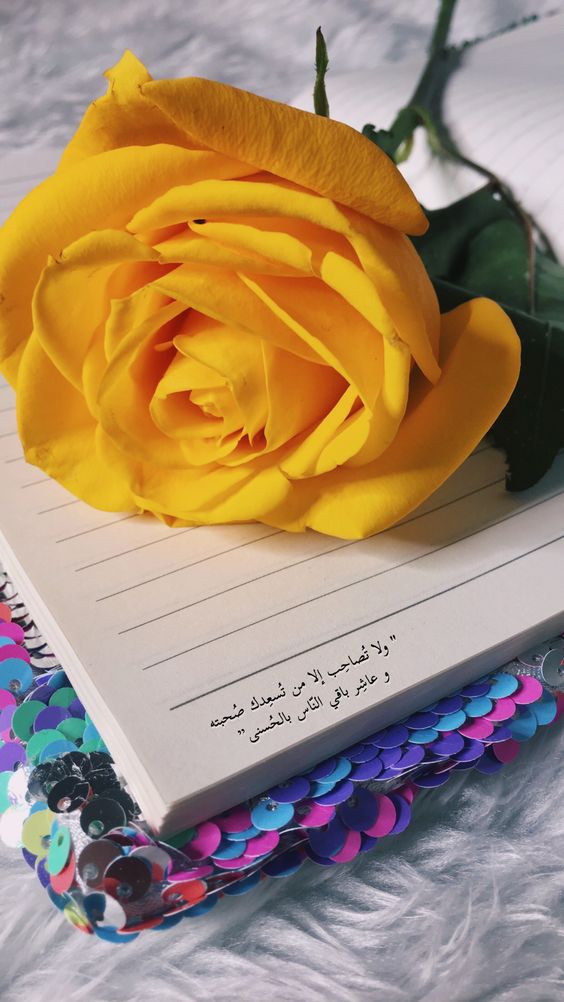 " ولا تُصاحِب إلا من تُسعِدك صُحبته
و عاشِر باقي النّاس بالحُسنى "